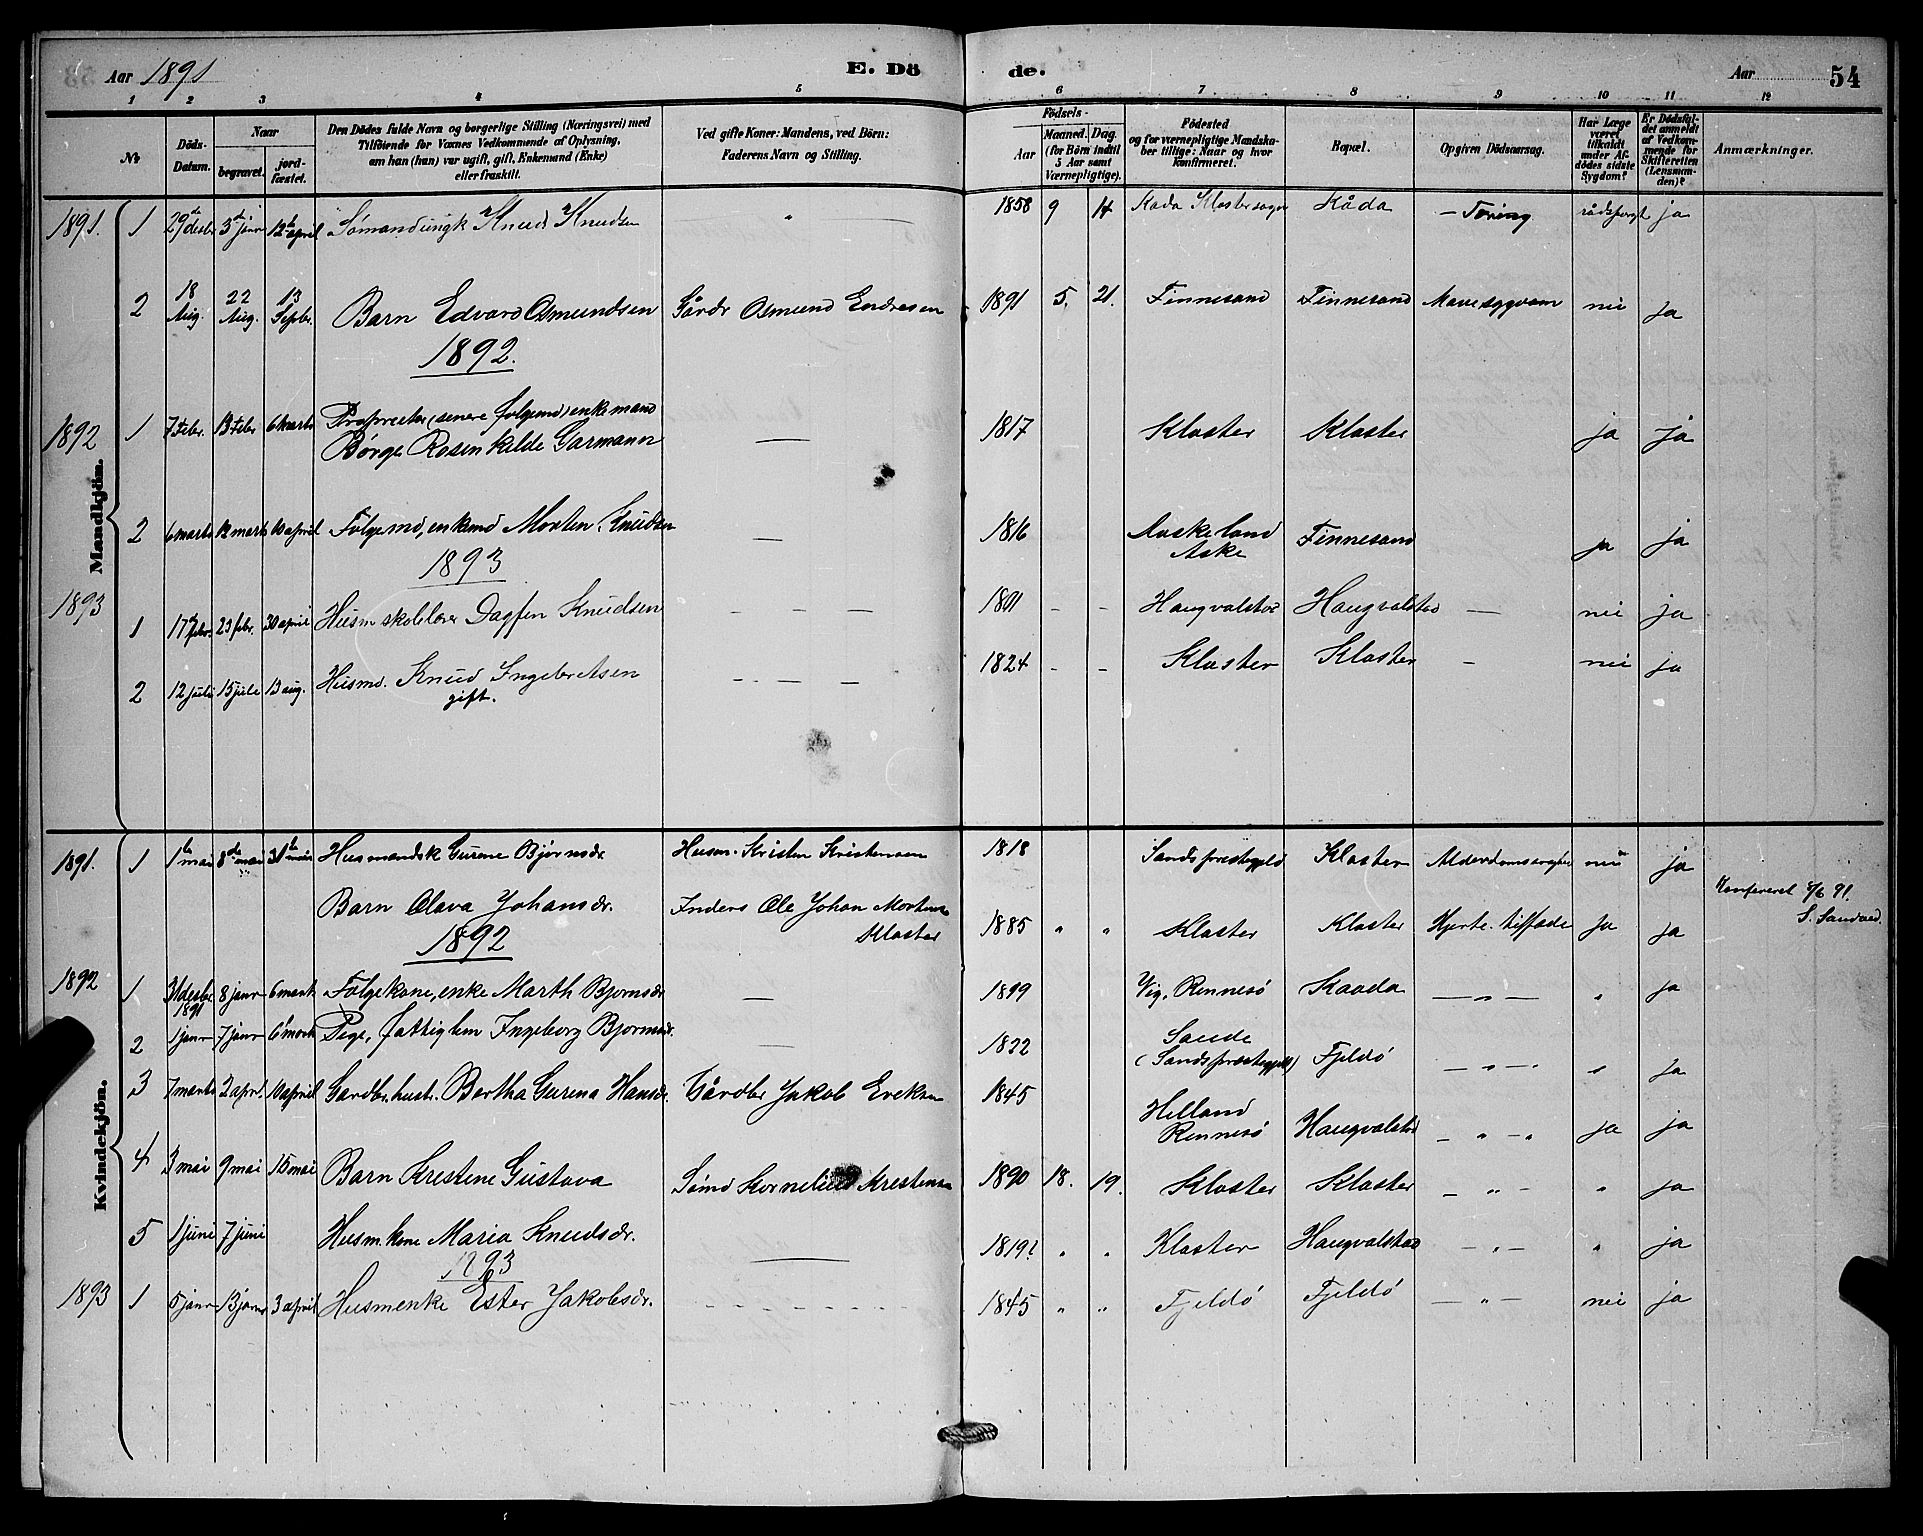 Aar 1891 E. Dö de. Aar 54
1 2 3 4 5 6 7 8 9 10 11 12
№ Döds-Datum. Naar begravet. jordfæstet. Den Dödes fulde Navn og borgerlige Stilling (Næringsvei) med Tilföiende for Voxnes Vedkommende af Oplysning, om han (hun) var ugift, gift, Enkemand (Enke) eller fraskilt. Ved gifte Koner: Mandens, ved Börn: Faderens Navn og Stilling. Födsels- Aar Maaned. Dag. (for Börn indtil 5 Aar samt Værnepligtige). Födested og for værnepligtige Mandskaber tillige: Naar og hvor konfirmeret. Bopæl. Opgiven Dödsaarsag. Har Læge været tilkaldt under Afdödes sidste Sygdom? Er Dödsfaldet anmeldt af Vedkommende for Skifteretten (Lensmanden)? Anmærkninger.
Mandkjön.
1891. 1 29de desbr 3de janr 12te april Sømandungk Knud Knudsen " 1858 9 14 Kåda ja
2 18 Aug. 22 Aug. 13 Septbr. Barn Edvard Osmundsen Gårdr Osmund Endresen 1891 5. 21. Finnesand Finnesand Mavesygdom nei ja
1892.
1892 1 7 Febr. 13 Febr 6 marts Proprieter (senere folgemd) enkemand
Børge Rosenkilde Garmann — 1817 Kloster Kloster ja ja
2 6 marts 12 marts 10 april Følgemd, enkemd Morten Knudsen — 1816 Askeland Aske Finnesand ja ja
1893
1893 1 17de febr. 23 febr. 30 april Husm skolelærer Dagfin Knudsen — — — 1801 - - Haugvalstad Haugvalstad — nei ja
2 12 juli 15 juli 13 aug. Husmd. Knud Ingebretsen — — — 1824 - - Kloster Kloster - nei ja
gift.
Kvindekjön.
1891. 1 1te mai 8de mai 31te mai Husmandsk Gurine Bjørnsdr Husm. Kristen Kristensen 1818 Sands præstegjeld Kloster nei ja
Barn Olava Johansdr. Inders Ole Johan Mortens Kloster 1885 " " Kloster Kloster Hjerte. tilfælde ja ja 8/6 91. S. Sandved.
1892
1892 1 31 desbr 1891 8 janr 6 marts Følgekone, enke Marth Bjornsdr — 1819 Vig, Rennesø Kaada — " — " ja
2 1 janr 7 janr 6 marts Pige, fattiglem Ingeborg Bjornsdr. — 1822 Sande (Sands præstegjeld) Fjeldø — " — " ja
3 7 marts 2 apr. 10 april Gardbr. hustr. Bertha Gurina Hansdr. Gårdbr Jakob Ereksen 1845 Helland Rennesø Haugvalstad — " — ja ja
4 3 mai 9 mai 15 mai Barn Kristene Gustava Sømd Kornelius Kristensen 1890 18. 19. Kloster Kloster — " — " ja
5 1 juni 7 juni Husm. kone Maria Knudsdr. — 1819? " " Kloster Haugvalstad — " — " ja
1893
1893 1 5 janr 13 janr 3 april Husmenke Ester Jakobsdr. - - - - - - - 1845 " " Fjeldø Fjeldø — " — nei ja